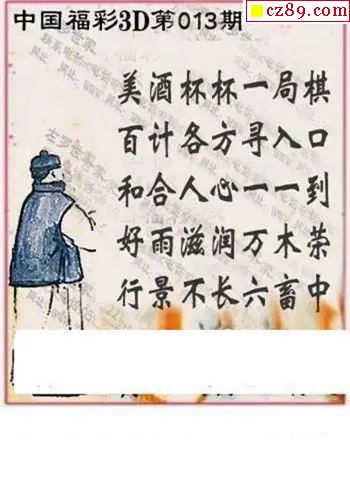 cz89.com
中国福彩3D第013期
美酒杯杯一局棋
百计各方寻入口
和合人心一一到
好雨滋润万木荣
行景不长六畜中